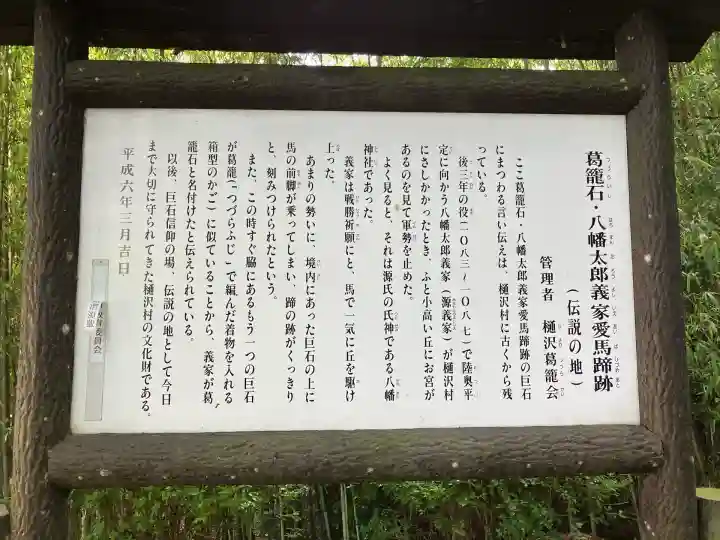 葛籠石・八幡太郎義家愛馬蹄跡
(伝説の地)
管理者 樋沢葛籠会
ここ葛籠石・八幡太郎義家愛馬蹄跡の巨石
にまつわる言い伝えは、樋沢村に古くから残
っている。
後三年の役(一〇八三〜一〇八七)で陸奥平
定に向かう八幡太郎義家(源義家)が樋沢村
にさしかかったとき、ふと小高い丘にお宮が
あるのを見て軍勢を止めた。
よく見ると、それは源氏の氏神である八幡
神社であった。
義家は戦勝祈願にと、馬で一気に丘を駆け
上った。
あまりの勢いに、境内にあった巨石の上に
馬の前脚が乗ってしまい、蹄の跡がくっきり
と、刻みつけられたという。
また、この時すぐ脇にあるもう一つの巨石
が葛籠(つづらふじ)で編んだ着物を入れる
箱型のかご)に似ていることから、義家が葛
籠石と名付けたと伝えられている。
以後、巨石信仰の場、伝説の地として今日
まで大切に守られてきた樋沢村の文化財である。
平成六年三月吉日